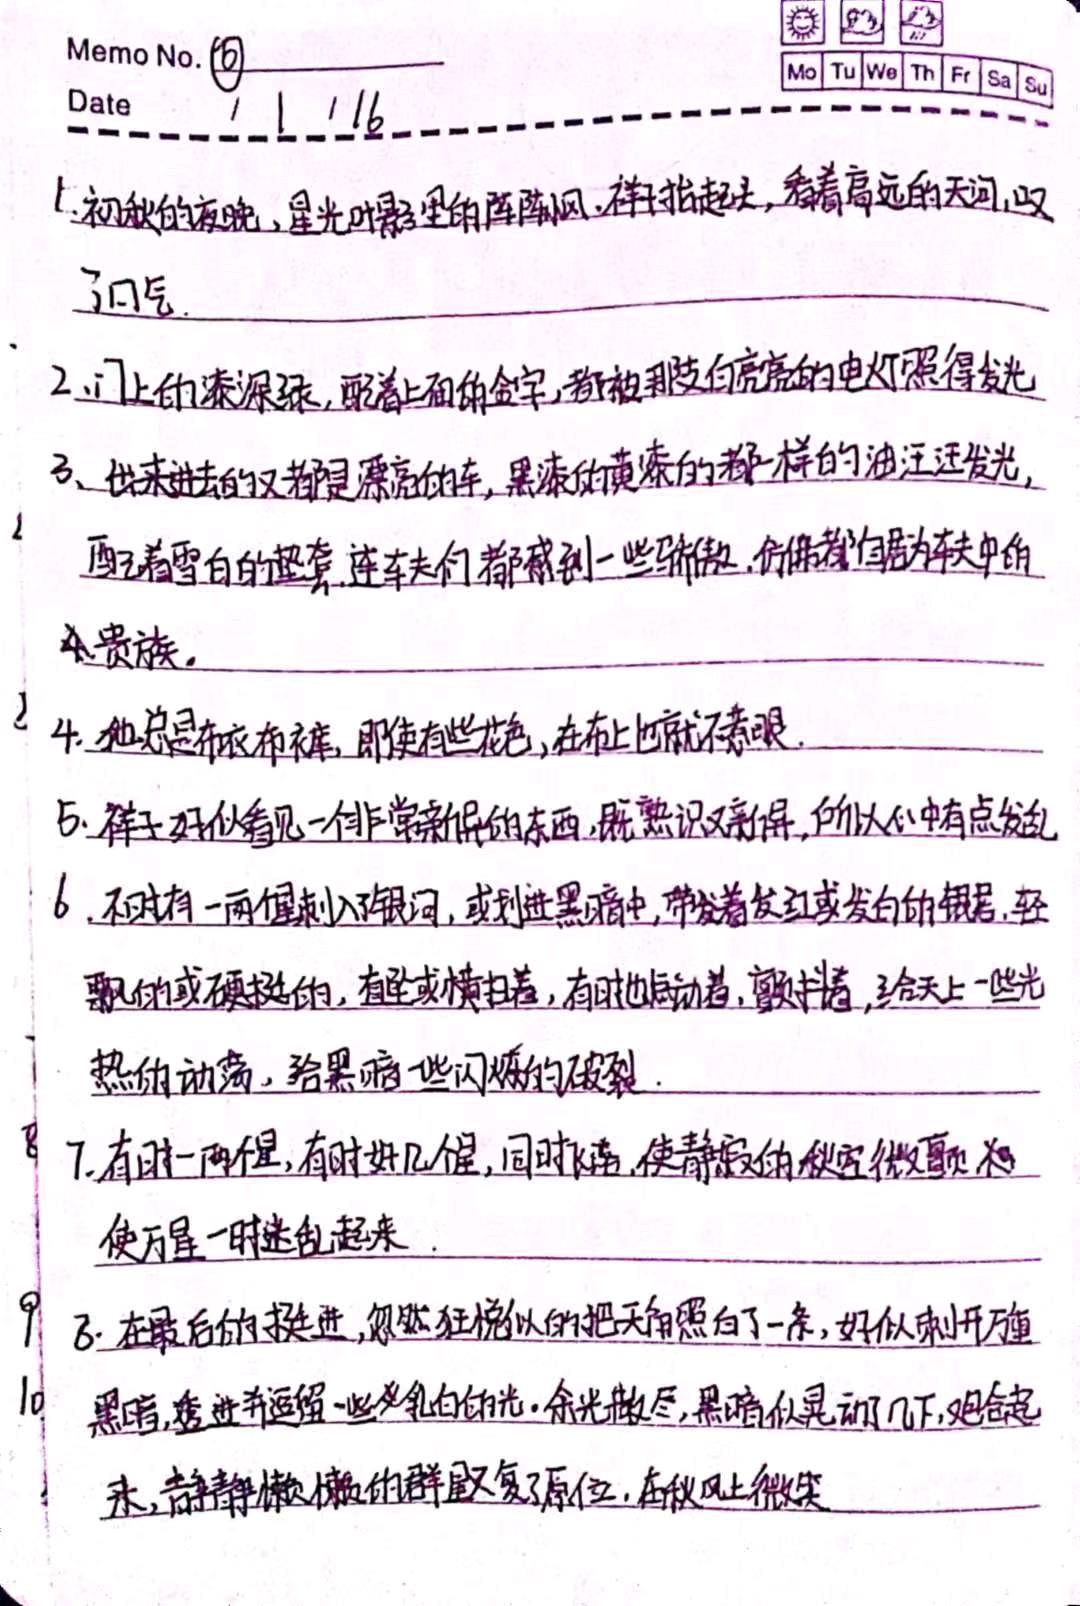 Memo No. ⑥
Mo Tu We Th Fr Sa Su
Date / 1 / 16
1. 初秋的夜晚,星光叶影里的阵阵小风.祥子抬起头,看着高远的天河,叹
了口气.
2. 门上的漆深绿,配着上面的金字,都被那支白亮亮的电灯照得发光
3、出来进去的又都是漂亮的车,黑漆的黄漆的都一样的油汪汪发光,
配着雪白的垫套.连车夫们都感到一些骄傲.仿佛都自居为车夫中的
贵族。
4. 她总是布衣布裤,即使有些花色,在布上也就不惹眼.
5. 祥子好似看见一个非常新异的东西,既熟识又新异,所以心中有点发乱
6.不时有一两个星刺入了银河,或划进黑暗中,带发着发红或发白的银尾.轻
飘的或硬挺的,直坠或横扫着,有时也点动着,颤抖着,给天上一些光
热的动荡,给黑暗一些闪烁的破裂.
7. 有时一两个星,有时好几个星,同时飞落,使静寂的秋空微颤
使万星一时迷乱起来.
8. 在最后的挺进,忽然狂悦似的把天角照白了一条,好似刺开万重
黑暗,透进并逗留一些乳白的光.余光散尽,黑暗似晃动了几下,又包合起
来,静静懒懒的群星又复了原位.在秋风上微笑
8
9
10